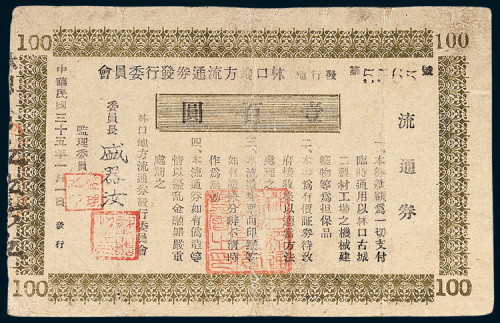 100
100
林口地方流通券發行委員會
發行地
第5565號
壹百圓
流通券
一、本券視為一切支付
臨時通用以林口古城
二製材工場之機械建
築物等為担保品
二、本券為有價証券待政
府接收後以適當方法
處理之
三、本流通券
如有
作為
四、本流通券如有偽造等
情以擾亂金融罪嚴重
處罰之
林口地方流通券發行委員會
委員長
監理委員
中華民國三十五年一月一日 發行
100
100